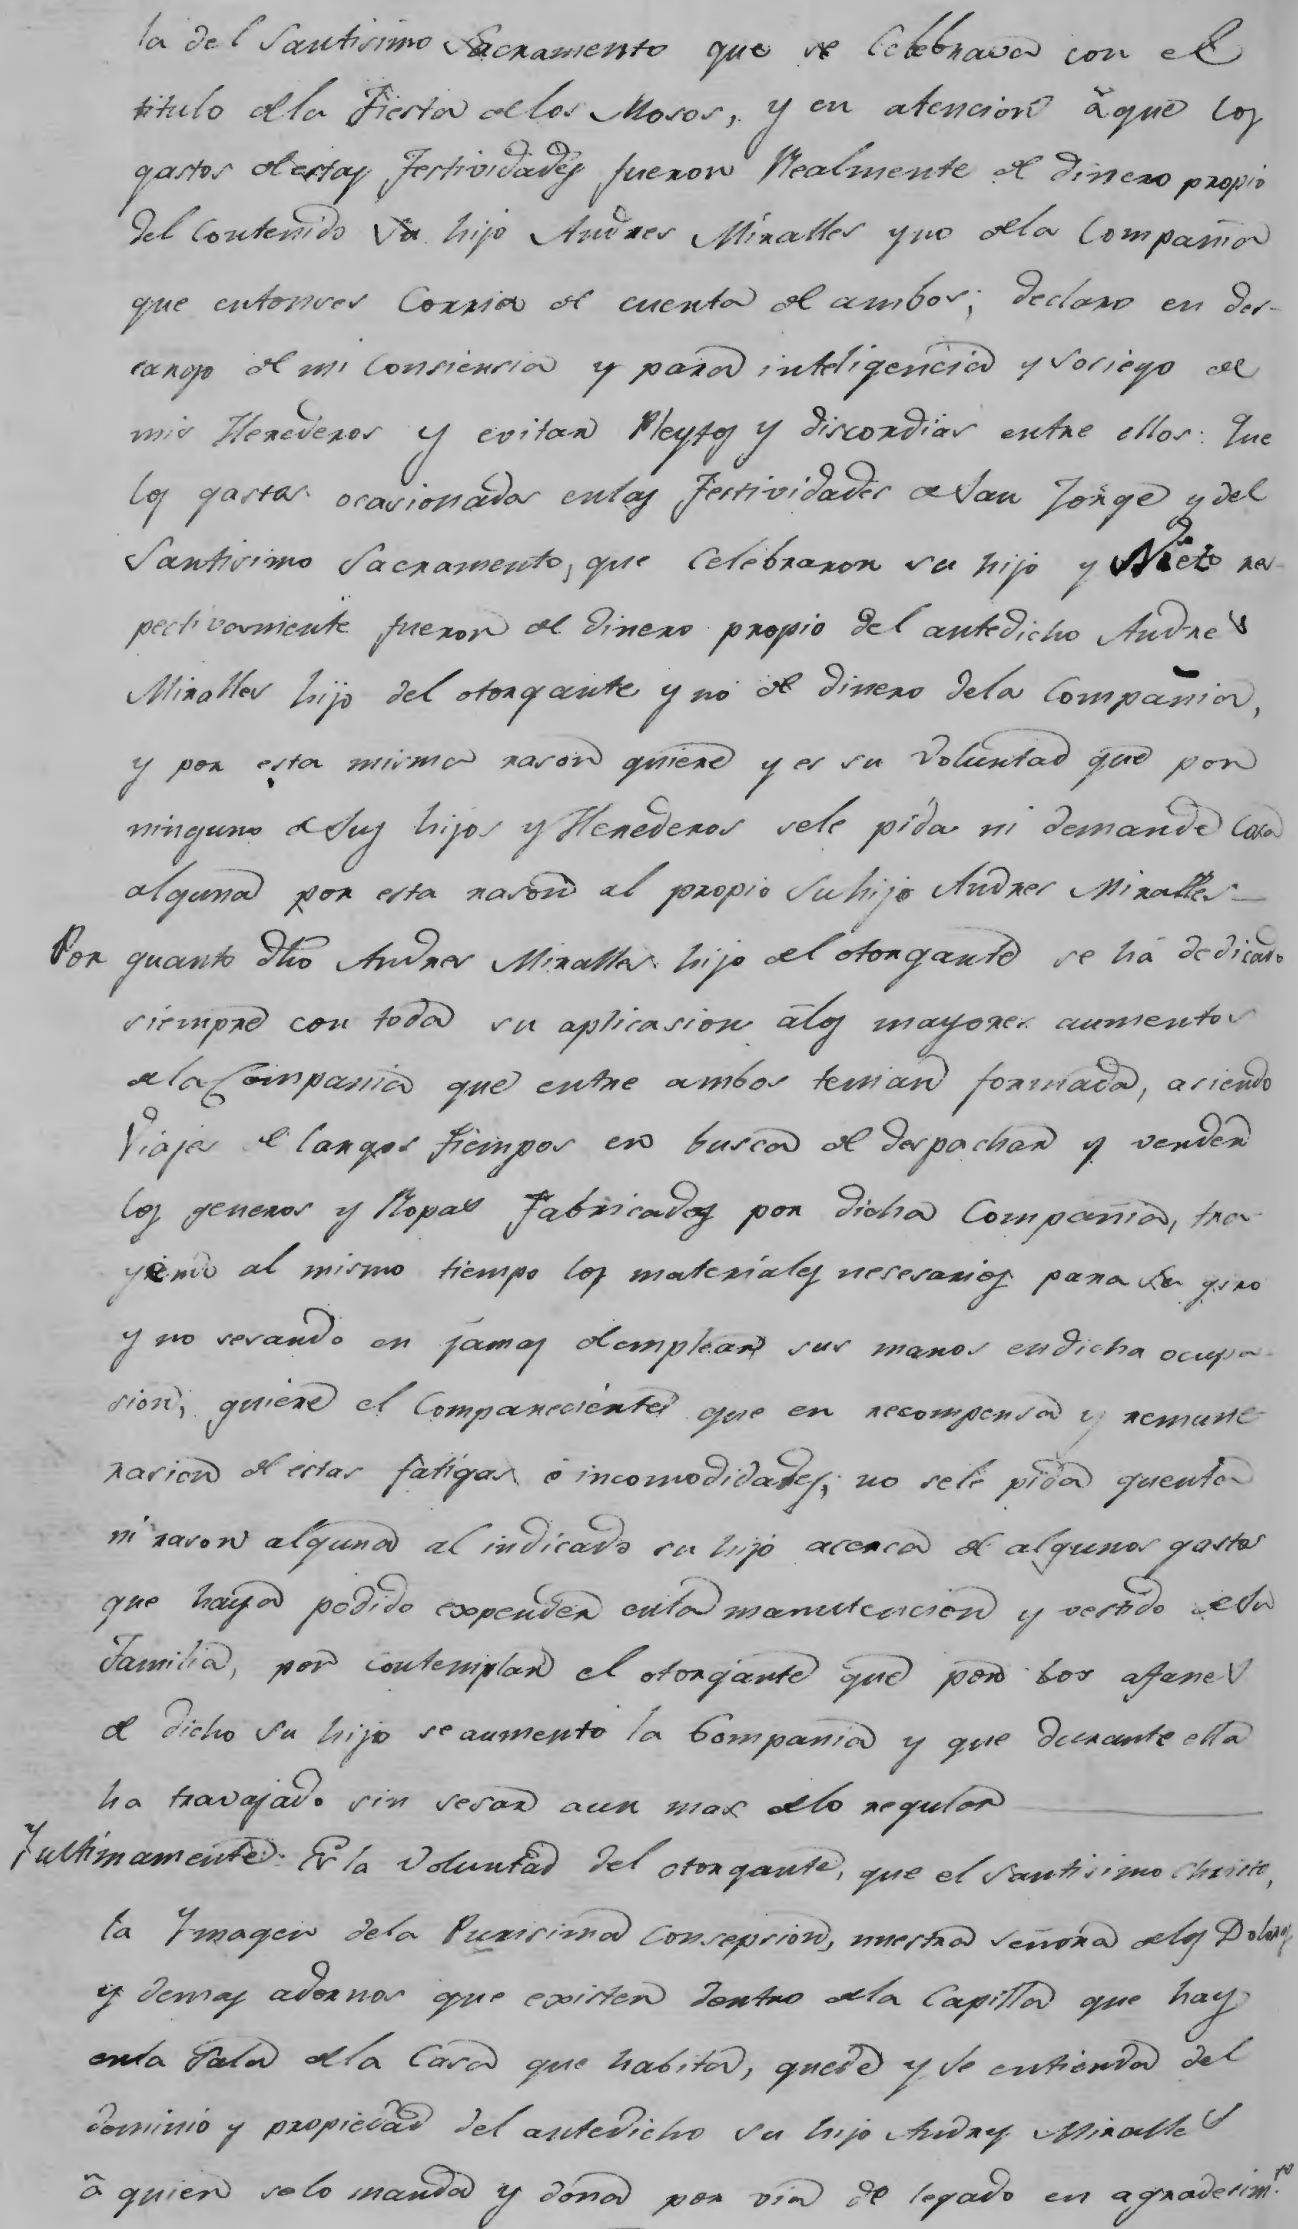 la del Santisimo Sacramento que se Celebrava con el
titulo dela Fiesta delos Mosos, y en atencion â que los
gastos destas festividades fueron Realmente de dinero propio
del Contenido su hijo Andres Miralles y no dela Compañia
que entonses Corria de cuenta de ambos; declaro en des-
cargo de mi Consiensia y para inteligencia y Sosiego de
mis Herederos y evitar Pleytos y discordias entre ellos: Que
los gastos ocasionados enlas festividades de San Jorge y del
Santisimo Sacramento, que Celebraron su hijo y Nieto res-
pectivamente fueron de dinero propio del antedicho Andres
Miralles hijo del otorgante y no de dinero dela Compañia,
y por esta misma rason quiere y es su Voluntad que por
ninguno de sus hijos y Herederos sele pida ni demande Cosa
alguna por esta rason al propio Su hijo Andres Miralles—
Por quanto dho Andres Miralles hijo del otorgante se há dedicado
siempre con toda su aplicasion â los mayores aumentos
dela Compania que entre ambos tenian formada, asiendo
Viajes de largos tiempos en busca de despachar y vender
los generos y Ropas Fabricados por dicha Compañia, tra-
yendo al mismo tiempo los materiales nesesarios para su giro
y no sesando en jamas demplear sus manos en dicha ocupa-
sion, quiere el Comparecientte que en recompensa y remune
rasion de estas fatigas é incomodidades, no sele pida quenta
ni rason alguna al indicado su hijo acerca de algunos gastos
que haya podido expender enla manutencion y vestido desu
Familia, por contemplar el otorgante que por los afanes
de dicho Su hijo se aumento la Compania y que durante ella
ha travajado sin sesar aun mas delo regular
Y ultimamente: Es la Voluntad del otorgante, que el Santisimo Christo,
la Ymagen dela Purisima Consepsion, nuestra Señora delos Dolores
y demas adornos que existen dentro dela Capilla que hay
enla Sala dela Casa que habita, quede y se entienda del
dominio y propiedad del antedicho su hijo Andres Miralles
â quien selo manda y dona por via de legado en agradesim.to